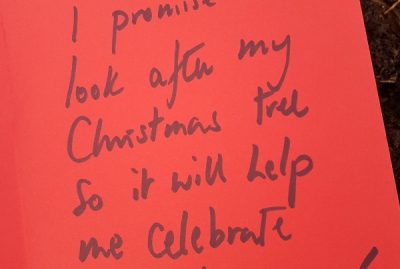 I promise
look after my
Christmas tree
So it will help
me celebrate